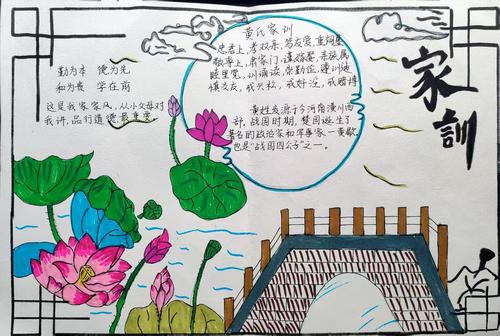 家训
黄氏家训
忠君上,孝双亲,笃友爱,重
敬事上,肃家门,谨婚娶,亲族属
睦里党,训诵读,崇勤俭,遵训迪
慎交友,戒 戒奸淫,戒赌博
勤为本 德为先
和为贵 学在前
这是我家家风,从小父母对
我讲,品行道德最重要。
黄姓发源于今河南潢川西
部,战国时期,楚国诞生了
著名的政治家和军事家—黄歇
也是"战国四公子"之一。